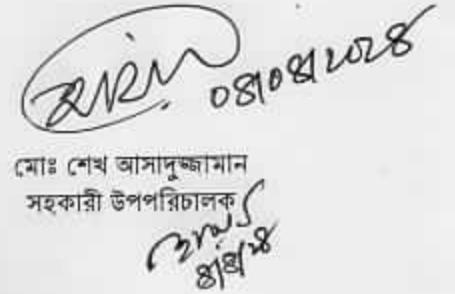 ০৪/০৪/২০২৪
মোঃ শেখ আসাদুজ্জামান
সহকারী উপপরিচালক
৪/৪/২৪